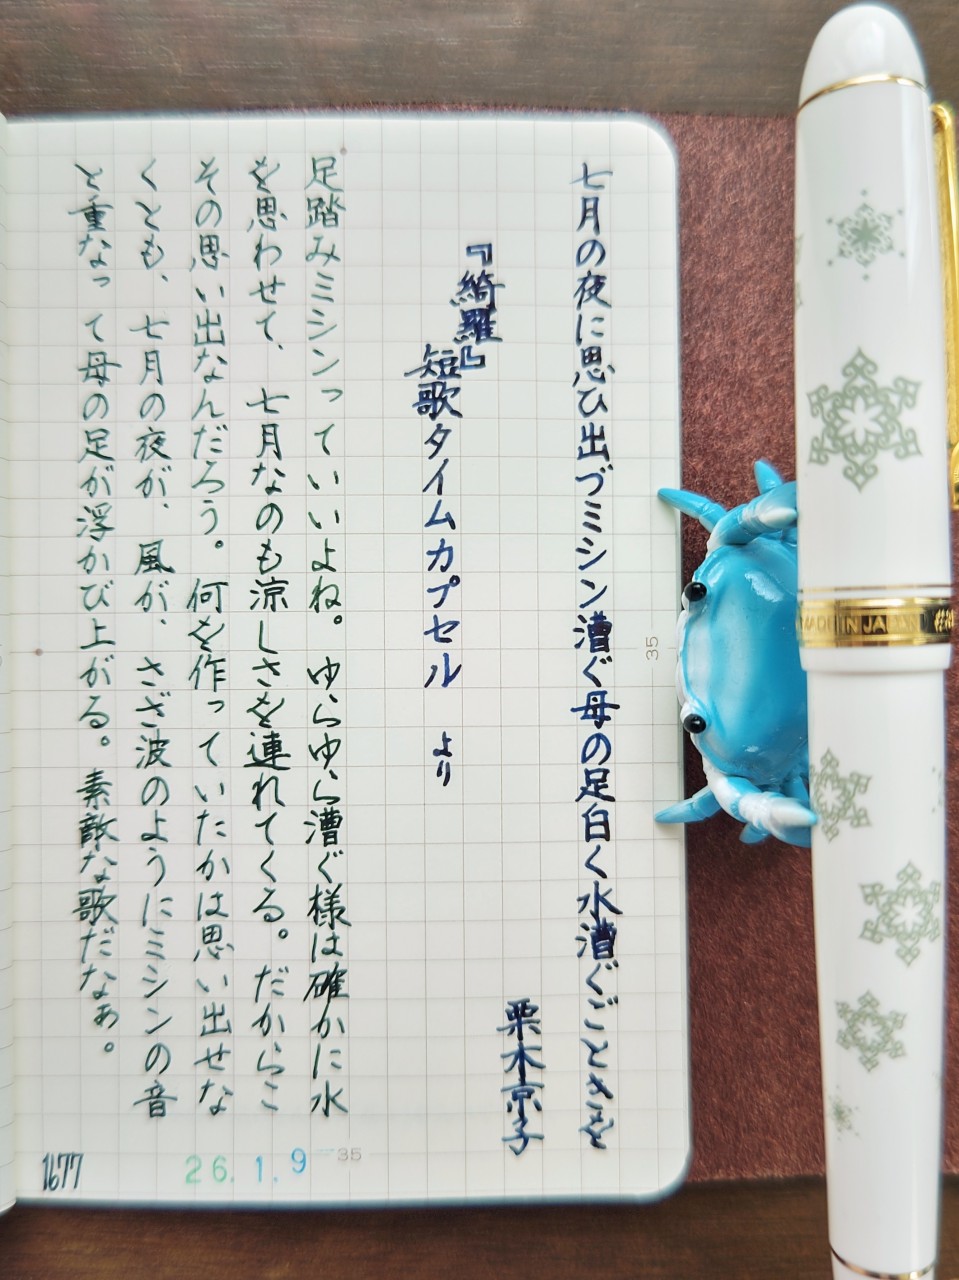 七月の夜に思ひ出づミシン漕ぐ母の足白く水漕ぐごときを
栗木京子
『綺羅』
短歌タイムカプセル より
足踏みミシンっていいよね。ゆらゆら漕ぐ様は確かに水
を思わせて、七月なのも涼しさを連れてくる。だからこ
その思い出なんだろう。何を作っていたかは思い出せな
くとも、七月の夜が、風が、さざ波のようにミシンの音
と重なって母の足が浮かび上がる。素敵な歌だなぁ。
1677
26.1.9
35
35
MADE IN JAPAN